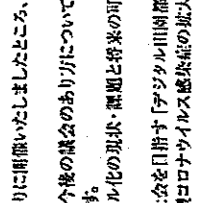 りに開催いたしましたところ、
今後の議会のあり方について
す。
ル化の現状・課題と将来の可
会を目指す「デジタル田園都
型コロナウイルス感染症の拡大